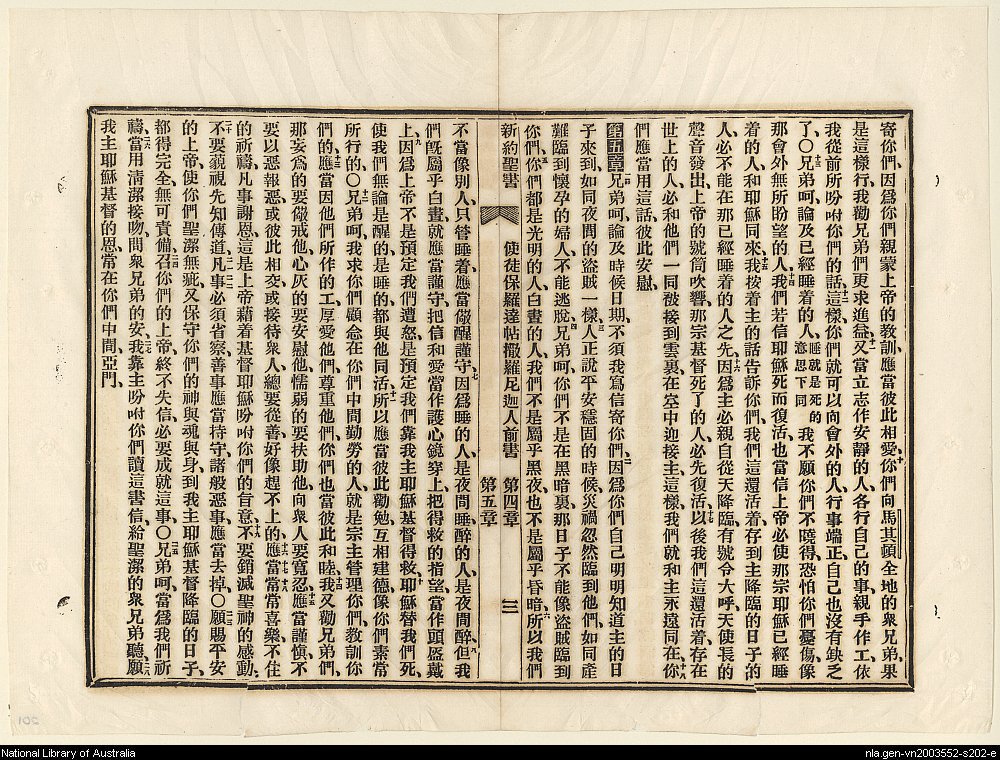 寄你們、因爲你們親蒙上帝的教訓、應當彼此相愛、十你們向馬其頓全地的衆兄弟、果
是這樣行、我勸兄弟們更求進益、十一又當立志作安靜的人、各行自己的事、親手作工、依
我從前所吩咐你們的話、十二這樣、你們就可以向會外的人、行事端正、自己也沒有缺乏
了、〇十三兄弟呵、論及已經睡着的人、睡就是死的意思下同我不願你們不曉得、恐怕你們憂傷、像
那會外無所盼望的人、十四我們若信耶穌死而復活、也當信上帝必使那宗耶穌已經睡
着的人、和耶穌同來、十五我按着主的話告訴你們、我們這還活着、存到主降臨的日子的
人、必不能在那已經睡着的人之先、十六因爲主必親自從天降臨、有號令大呼、天使長的
聲音發出、上帝的號筒吹響、那宗基督死了的人、必先復活、十七以後我們這還活着、存在
世上的人、必和他們一同被接到雲裏、在空中迎接主、這樣、我們就和主永遠同在、十八你
們應當用這話彼此安慰、
第五章一兄弟呵、論及時候日期、不須我寫信寄你們、二因爲你們自己明明知道主的日
子來到、如同夜間的盜賊一樣、三人正說平安穩固的時候、災禍忽然臨到他們、如同產
難臨到懷孕的婦人、不能逃脫、四兄弟呵、你們不是在黑暗裏、那日子不能像盜賊臨到
你們、五你們都是光明的人、白晝的人、我們不是屬乎黑夜、也不是屬乎昏暗、六所以我們
新約聖書 使徒保羅達帖撒羅尼迦人前書 第四章 第五章 三
不當像別人、只管睡着、應當儆醒謹守、七因爲睡的人、是夜間睡、醉的人、是夜間醉、八但我
們既屬乎白晝、就應當謹守、把信和愛、當作護心鏡穿上、把得救的指望、當作頭盔戴
上、九因爲上帝不是預定我們遭怒、是預定我們靠我主耶穌基督得救、十耶穌替我們死、
使我們無論是醒的、是睡的、都與他同活、十一所以應當彼此勸勉、互相建德、像你們素常
所行的、〇十二兄弟呵、我求你們顧念在你們中間勤勞的人、就是宗主管理你們、教訓你
們的、十三應當因他們所作的工、厚愛他們、尊重他們、你們也當彼此和睦、十四我又勸兄弟們、
那妄爲的要儆戒他、心灰的要安慰他、懦弱的要扶助他、向衆人要寬忍、十五應當謹愼、不
要以惡報惡、或彼此相交、或接待衆人、總要從善、好像趕不上的、十六應當常常喜樂、十七不住
的祈禱、十八凡事謝恩、這是上帝藉着基督耶穌吩咐你們的旨意、十九不要銷滅聖神的感動、
二十不要藐視先知傳道、二一凡事必須省察、善事應當持守、二二諸般惡事應當去掉、〇二三願賜平安
的上帝、使你們聖潔無疵、又保守你們的神與魂與身、到我主耶穌基督降臨的日子、
都得完全、無可責備、二四召你們的上帝、終不失信、必要成就這事、〇二五兄弟呵、當爲我們祈
禱、二六當用清潔接吻、問衆兄弟的安、二七我靠主吩咐你們、讀這書信、給聖潔的衆兄弟聽、二八願
我主耶穌基督的恩、常在你們中間、亞門、
National Library of Australia
nla.gen-vn2003552-s202-e